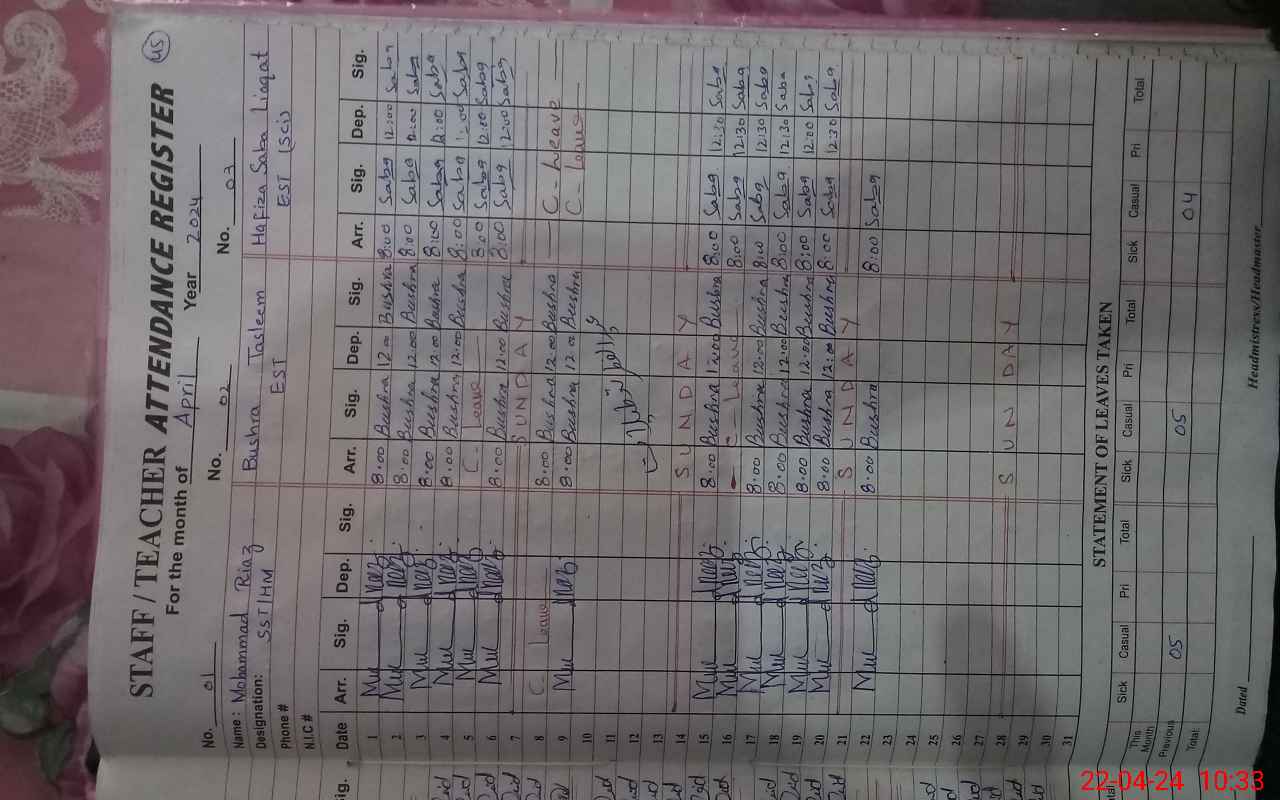 STAFF / TEACHER ATTENDANCE REGISTER 45
For the month of April Year 2024
No. 01 No. 02 No. 03
Name: Mohammad Riaz Bushra Tasleem Hafiza Saba Liaqat
Designation: SST/HM EST EST (Sci)
Phone #
N.I.C #
Date Arr. Sig. Dep. Sig. Arr. Sig. Dep. Sig. Arr. Sig. Dep. Sig.
1 8:00 Bushra 12:00 Bushra 8:00 Saba 12:00 Saba
2 8:00 Bushra 12:00 Bushra 8:00 Saba 12:00 Saba
3 8:00 Bushra 12:00 Bushra 8:00 Saba 12:00 Saba
4 8:00 Bushra 12:00 Bushra 8:00 Saba 12:00 Saba
5 C. Leave 8:00 Saba 12:00 Saba
6 8:00 Bushra 12:00 Bushra 8:00 Saba 12:00 Saba
7 SUNDAY
8 C. Leave 8:00 Bushra 12:00 Bushra C- Leave
9 8:00 Bushra 12:00 Bushra C- Leave
10
11
12
13
14 SUNDAY
15 8:00 Bushra 12:00 Bushra 8:00 Saba 12:30 Saba
16 C- Leave 8:00 Saba 12:30 Saba
17 8:00 Bushra 12:00 Bushra 8:00 Saba 12:30 Saba
18 8:00 Bushra 12:00 Bushra 8:00 Saba 12:30 Saba
19 8:00 Bushra 12:00 Bushra 8:00 Saba 12:00 Saba
20 8:00 Bushra 12:00 Bushra 8:00 Saba 12:30 Saba
21 SUNDAY
22 8:00 Bushra 8:00 Saba
23
24
25
26
27
28 SUNDAY
29
30
31
STATEMENT OF LEAVES TAKEN
Sick Casual Pri Total Sick Casual Pri Total Sick Casual Pri Total
This Month
Previous 05 05 04
Total
Dated Headmistress/Headmaster
22-04-24 10:33